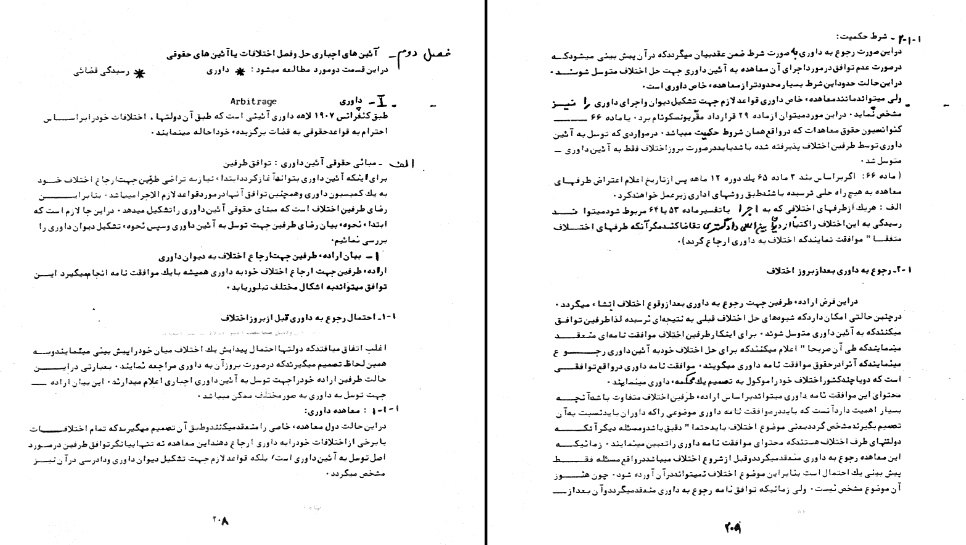 فصل دوم - آئین های اجباری حل و فصل اختلافات یا آئین های حقوقی
در این قسمت دو مورد مطالعه میشود : * داوری * رسیدگی قضائی
I - داوری Arbitrage
طبق کنفرانس ۱۹۰۷ لاهه داوری آئینی است که طبق آن دولتها ، اختلافات خود را بر اساس
احترام به قواعد حقوقی به قضات برگزیده خود احاله مینمایند .
الف - مبانی حقوقی آئین داوری : توافق طرفین
برای اینکه آئین داوری بتواند آغاز گردد ابتدا نیاز به تراضی طرفین جهت ارجاع اختلاف خود
به یک کمیسیون داوری و همچنین توافق آنها در مورد قواعد لازم الاجرا میباشد . بنابراین
رضای طرفین اختلاف است که مبنای حقوقی آئین داوری را تشکیل میدهد . در این جا لازم است که
ابتدا نحوه بیان رضای طرفین جهت توسل به آئین داوری و سپس نحوه تشکیل دیوان داوری را
بررسی نمائیم .
۱ - بیان اراده طرفین جهت ارجاع اختلاف به دیوان داوری
اراده طرفین جهت ارجاع اختلاف خود به داوری همیشه با یک موافقت نامه انجام میگیرد این
توافق میتواند به اشکال مختلف تبلور یابد .
۱-۱- احتمال رجوع به داوری قبل از بروز اختلاف
اغلب اتفاق میافتد که دولتها احتمال پیدایش یک اختلاف میان خود را پیش بینی مینمایند و به
همین لحاظ تصمیم میگیرند که در صورت بروز آن به داوری مراجعه نمایند . بعبارتی در این
حالت طرفین اراده خود را جهت توسل به آئین داوری اجباری اعلام میدارند . این بیان اراده
جهت توسل به داوری به صور مختلف ممکن میباشد .
۱-۱-۱ : معاهده داوری :
در این حالت دول معاهده خاصی را منعقد میکنند و طبق آن تصمیم میگیرند که تمام اختلافات
یا برخی از اختلافات خود را به داوری ارجاع دهند این معاهده نه تنها بیانگر توافق طرفین در مورد
اصل توسل به آئین داوری است بلکه قواعد لازم جهت تشکیل دیوان داوری و دادرسی در آن نیز
مشخص میگردد .
۲۰۸
۲-۱-۱ - شرط حکمیت :
در این صورت رجوع به داوری به صورت شرط ضمن عقد بیان میگردد که در آن پیش بینی میشود که
در صورت عدم توافق در مورد اجرای آن معاهده به آئین داوری جهت حل اختلاف متوسل شوند .
در این حالت حدود این شرط بسیار محدودتر از معاهده خاص داوری است .
ولی میتواند مانند معاهده خاص داوری قواعد لازم جهت تشکیل دیوان و اجرای داوری را نیز
مشخص نماید . در این مورد میتوان از ماده ۲۹ قرارداد مقر یونسکو نام برد . یا ماده ۶۶
کنوانسیون حقوق معاهدات که در واقع همان شروط حکمیت میباشد . در مواردی که توسل به آئین
داوری توسط طرفین اختلاف پذیرفته شده باشد باید در صورت بروز اختلاف فقط به آئین داوری
متوسل شد .
( ماده ۶۶ : اگر بر اساس بند ۳ ماده ۶۵ یک دوره ۱۲ ماهه پس از تاریخ اعلام اعتراض طرفهای
معاهده به هیچ راه حلی نرسیده باشند طبق روشهای اداری زیر عمل خواهند کرد .
الف : هر یک از طرفهای اختلافی که به اجرا یا تفسیر ماده ۵۳ یا ۶۴ مربوط شود میتواند
رسیدگی به این اختلاف را کتبا از دیوان بین المللی دادگستری تقاضا کند مگر آنکه طرفهای اختلاف
متفقا " موافقت نمایند که اختلاف به داوری ارجاع گردد ) .
۲-۱- رجوع به داوری بعد از بروز اختلاف
در این فرض اراده طرفین جهت رجوع به داوری بعد از وقوع اختلاف انشاء میگردد .
در چنین حالتی امکان دارد که شیوه های حل اختلاف قبلی به نتیجه ای نرسیده لذا طرفین توافق
میکنند که به آئین داوری متوسل شوند . برای اینکار طرفین اختلاف موافقت نامه ای منعقد
مینمایند که طی آن صریحا " اعلام میکنند که برای حل اختلاف خود به آئین داوری رجوع
مینمایند که آنرا در حقوق موافقت نامه داوری میگویند . موافقت نامه داوری در واقع توافقی
است که دو یا چند کشور اختلاف خود را موکول به تصمیم یک محکمه داوری مینمایند .
محتوای این موافقت نامه داوری میتواند بر اساس اراده طرفین اختلاف متفاوت باشد آنچه
بسیار اهمیت دارد آنست که باید در موافقت نامه داوری موضوعی را که داوران باید نسبت به آن
تصمیم بگیرند مشخص گردد یعنی موضوع اختلاف باید حتما " دقیق باشد و مسئله دیگر آنکه
دولتهای طرف اختلاف هستند که محتوای موافقت نامه داوری را تعیین مینمایند . زمانیکه
این معاهده رجوع به داوری منعقد میگردد و قبل از شروع اختلاف میباشد در واقع مسئله فقط
پیش بینی یک احتمال است بنابراین موضوع اختلاف نمیتواند در آن آورده شود . چون هنوز
آن موضوع مشخص نیست . ولی زمانیکه توافق نامه رجوع به داوری منعقد میگردد و آن بعد از
۲۰۹